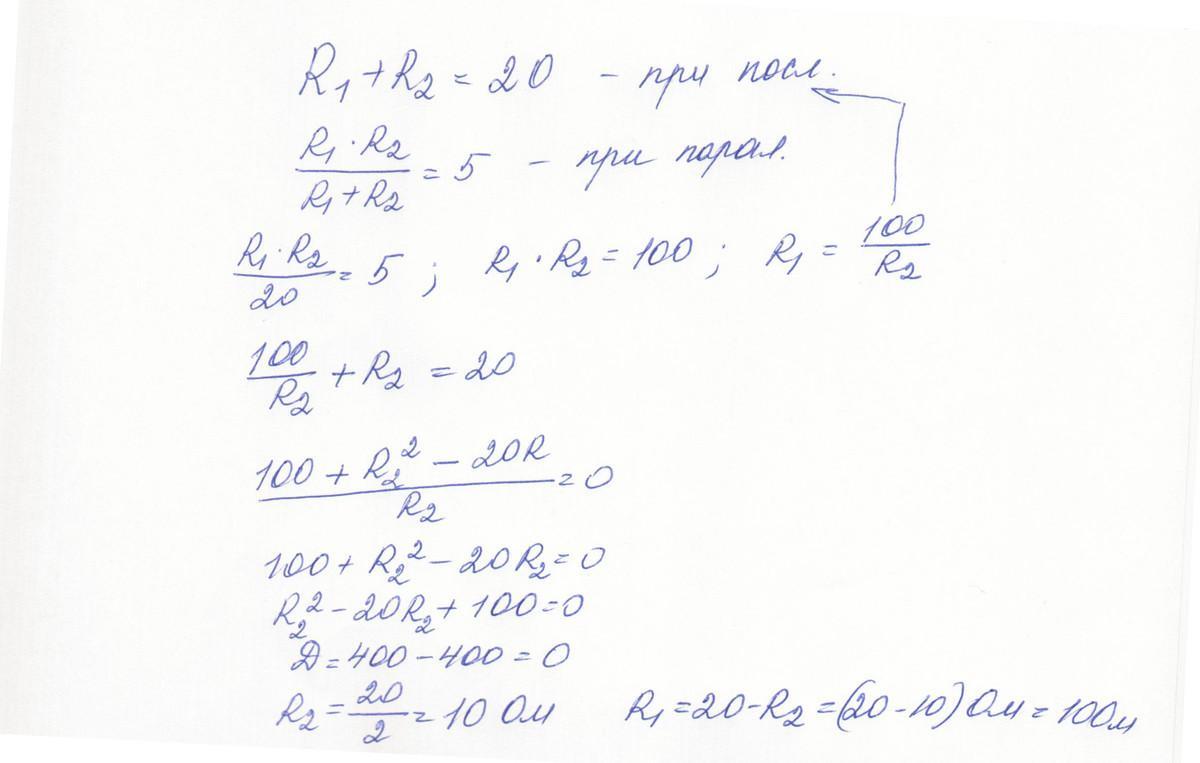 R₁ + R₂ = 20 – при посл.
R₁ · R₂ / R₁ + R₂ = 5 – при парал.
R₁ · R₂ / 20 = 5 ; R₁ · R₂ = 100 ; R₁ = 100 / R₂
100 / R₂ + R₂ = 20
100 + R₂² – 20R / R₂ = 0
100 + R₂² – 20R₂ = 0
R₂² – 20R₂ + 100 = 0
Д = 400 – 400 = 0
R₂ = 20 / 2 = 10 Ом R₁ = 20 – R₂ = (20 – 10) Ом = 10Ом